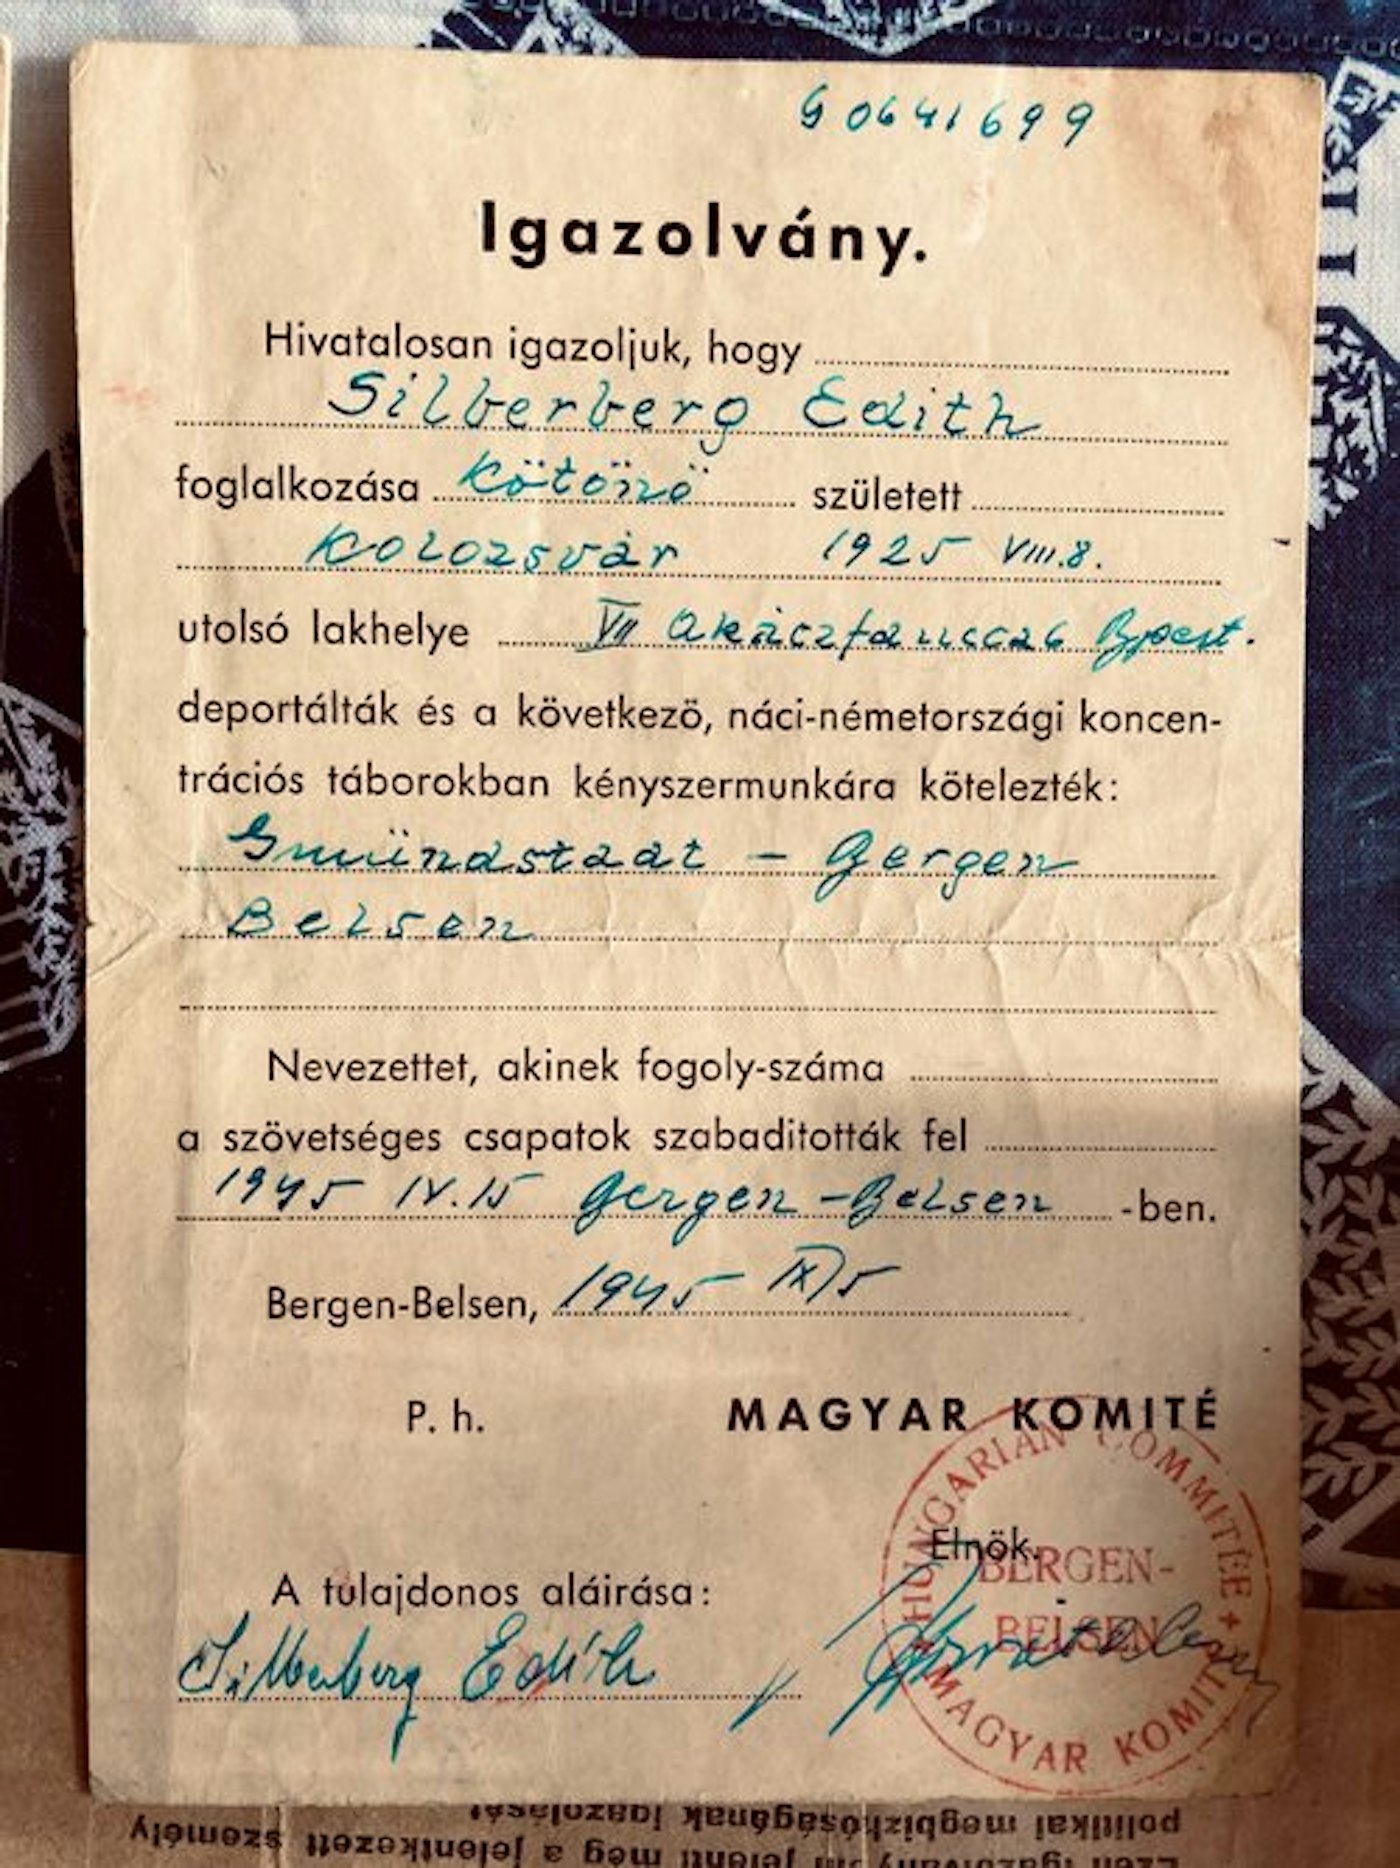 G 0641699
Igazolvány.
Hivatalosan igazoljuk, hogy
Silberberg Edith
foglalkozása Kötönö született
Kolozsvár 1925 VIII.8.
utolsó lakhelye VII Akáczfauccab Bpest.
deportálták és a következö, náci-németországi koncen-
trációs táborokban kényszermunkára kötelezték:
Gmündstadt - Bergen
Belsen
Nevezettet, akinek fogoly-száma
a szövetséges csapatok szabaditották fel
1945 IV.15 Bergen-Belsen -ben.
Bergen-Belsen, 1945 IX/5
P. h. MAGYAR KOMITÉ
HUNGARIAN COMMITTEE + MAGYAR KOMITÉ
Elnök.
BERGEN-
BELSEN
A tulajdonos aláirása:
Silberberg Edith
politikai megbizhóságának igazolását
meg a jelentkezett személy